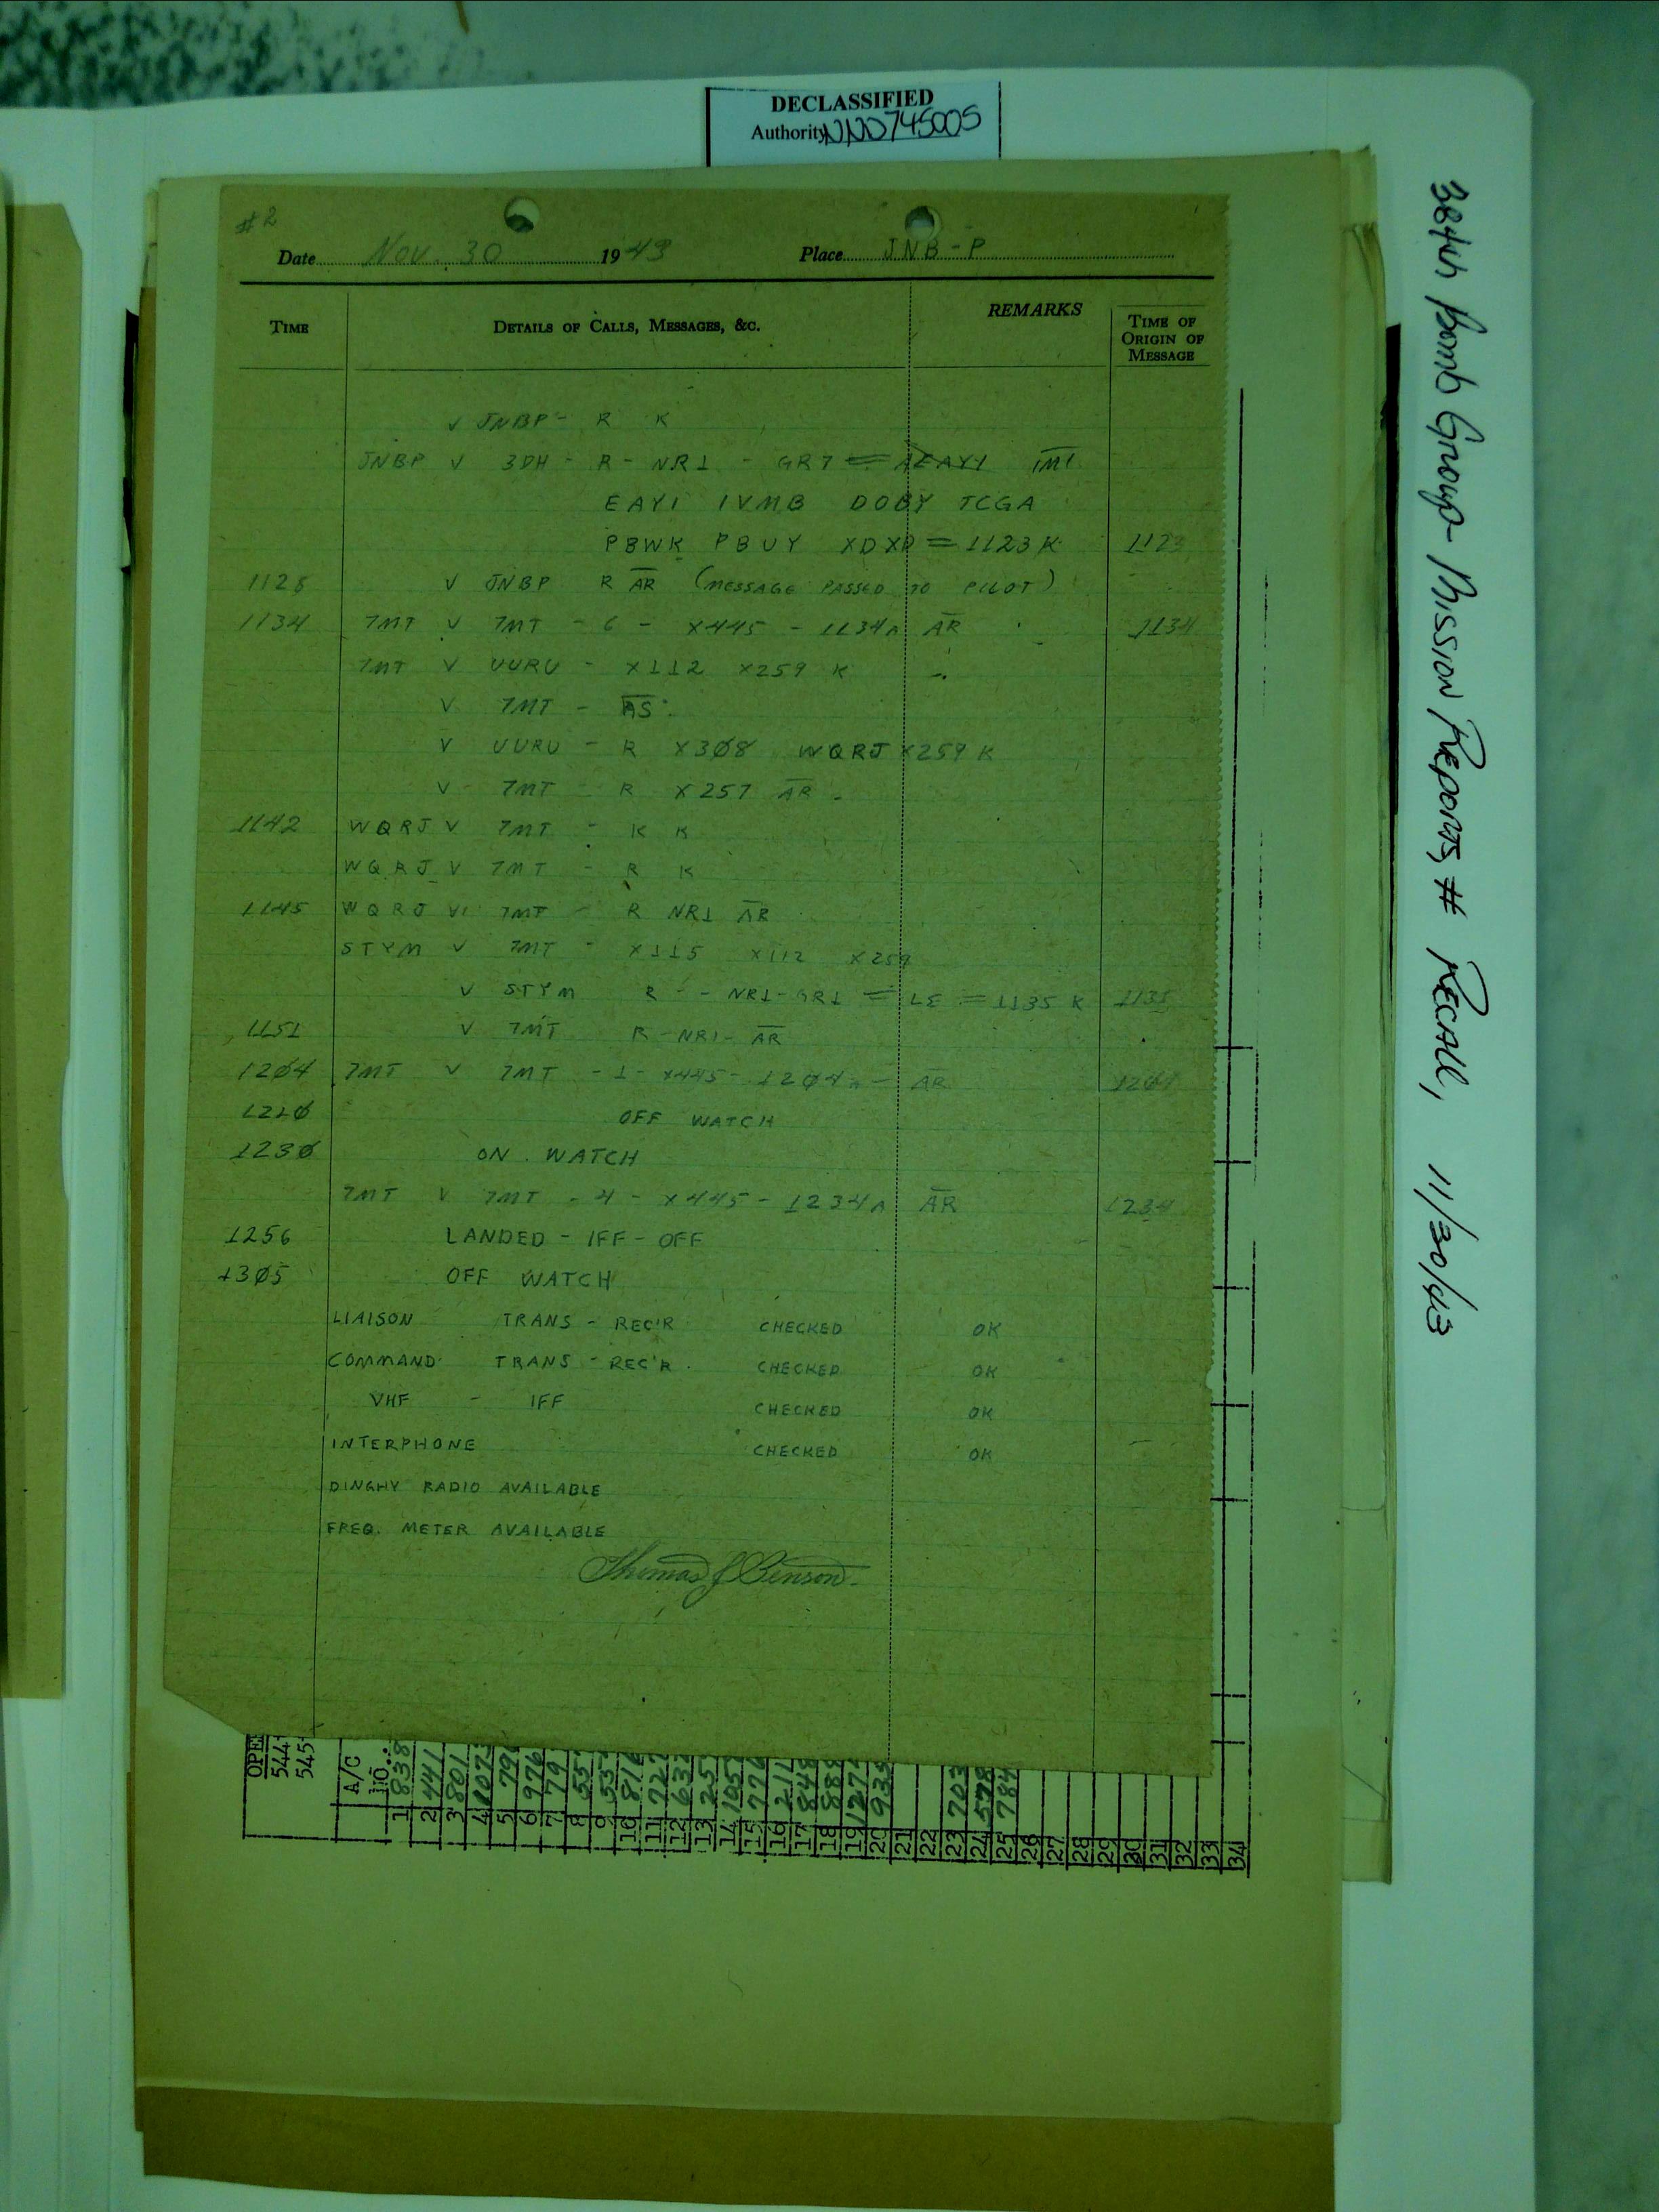 DECLASSIFIED
Authority NND745005
384th Bomb Group Mission Reports, # Recall, 11/30/43
#2
Date Nov. 30 1943 Place JNB-P
TIME DETAILS OF CALLS, MESSAGES, &C. REMARKS TIME OF ORIGIN OF MESSAGE
V JNBP - R K
JNBP V 3DH - R - NR1 - GR7 = AEAYI IMI
EAYI IVMB DOBY TCGA
PBWK PBUY XDXD = 1123 K 1123
1128 V JNBP R AR (MESSAGE PASSED TO PILOT)
1134 7MT V 7MT - 6 - X445 - 1134A AR 1134
7MT V UURU - X112 X259 K
V 7MT - AS
V UURU - R X308 WQRJ X259 K
V 7MT - R X257 AR
1142 WQRJ V 7MT - K K
WQRJ V 7MT - R K
1145 WQRJ V 7MT - R NR1 AR
STYM V 7MT - X115 X112 X259
V STYM R - - NR1 - GR1 = LE = 1135 K 1135
1151 V 7MT R - NR1 - AR
1204 7MT V 7MT - 1 - X445 - 1204A - AR 1204
1210 OFF WATCH
1230 ON WATCH
7MT V 7MT - 4 - X445 - 1234A AR 1234
1256 LANDED - IFF - OFF
1305 OFF WATCH
LIAISON TRANS - REC'R CHECKED OK
COMMAND TRANS - REC'R. CHECKED OK
VHF - IFF CHECKED OK
INTERPHONE CHECKED OK
DINGHY RADIO AVAILABLE
FREQ. METER AVAILABLE
Thomas J Benson
OPE
544
545
A/C NO.
1 838
2 441
3 801
4 1073
5 79
6 976
7 79
8 55
9 53
10 816
11 727
12 63
13 25
14 105
15 776
16 211
17 848
18 888
19 1272
20 933
21
22
23 703
24 578
25 784
26
27
28
29
30
31
32
33
34